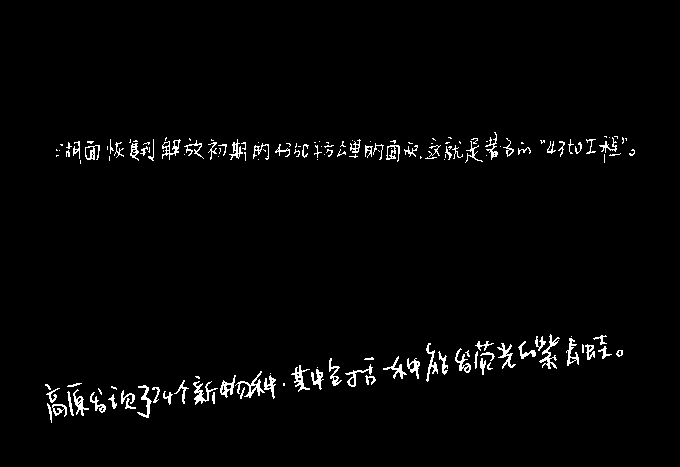 湖面恢复到解放初期的4350平方公里的面积,这就是著名的“4350工程”。
高原发现了24个新物种,其中包括一种能发荧光的紫青蛙。